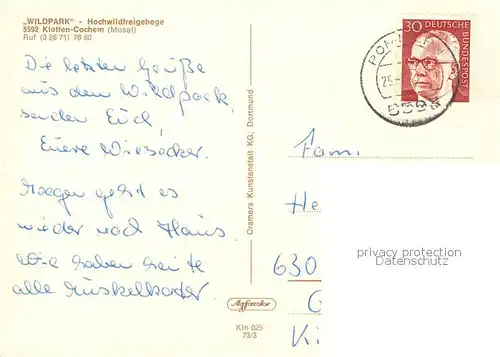 „WILDPARK" - Hochwildfreigehege
5592 Klotten-Cochem (Mosel)
Ruf (0 26 71) 76 60
Die letzten Grüße
aus dem Wildpark
senden Euch
Euere
Morgen geht es
wieder nach Haus
Wir haben heute
alle Muskelkater
Cramers Kunstanstalt KG, Dortmund
Agfacolor
Kln 025
73/3
30
DEUTSCHE
BUNDESPOST
Fam.
He
630
privacy protection
Datenschutz